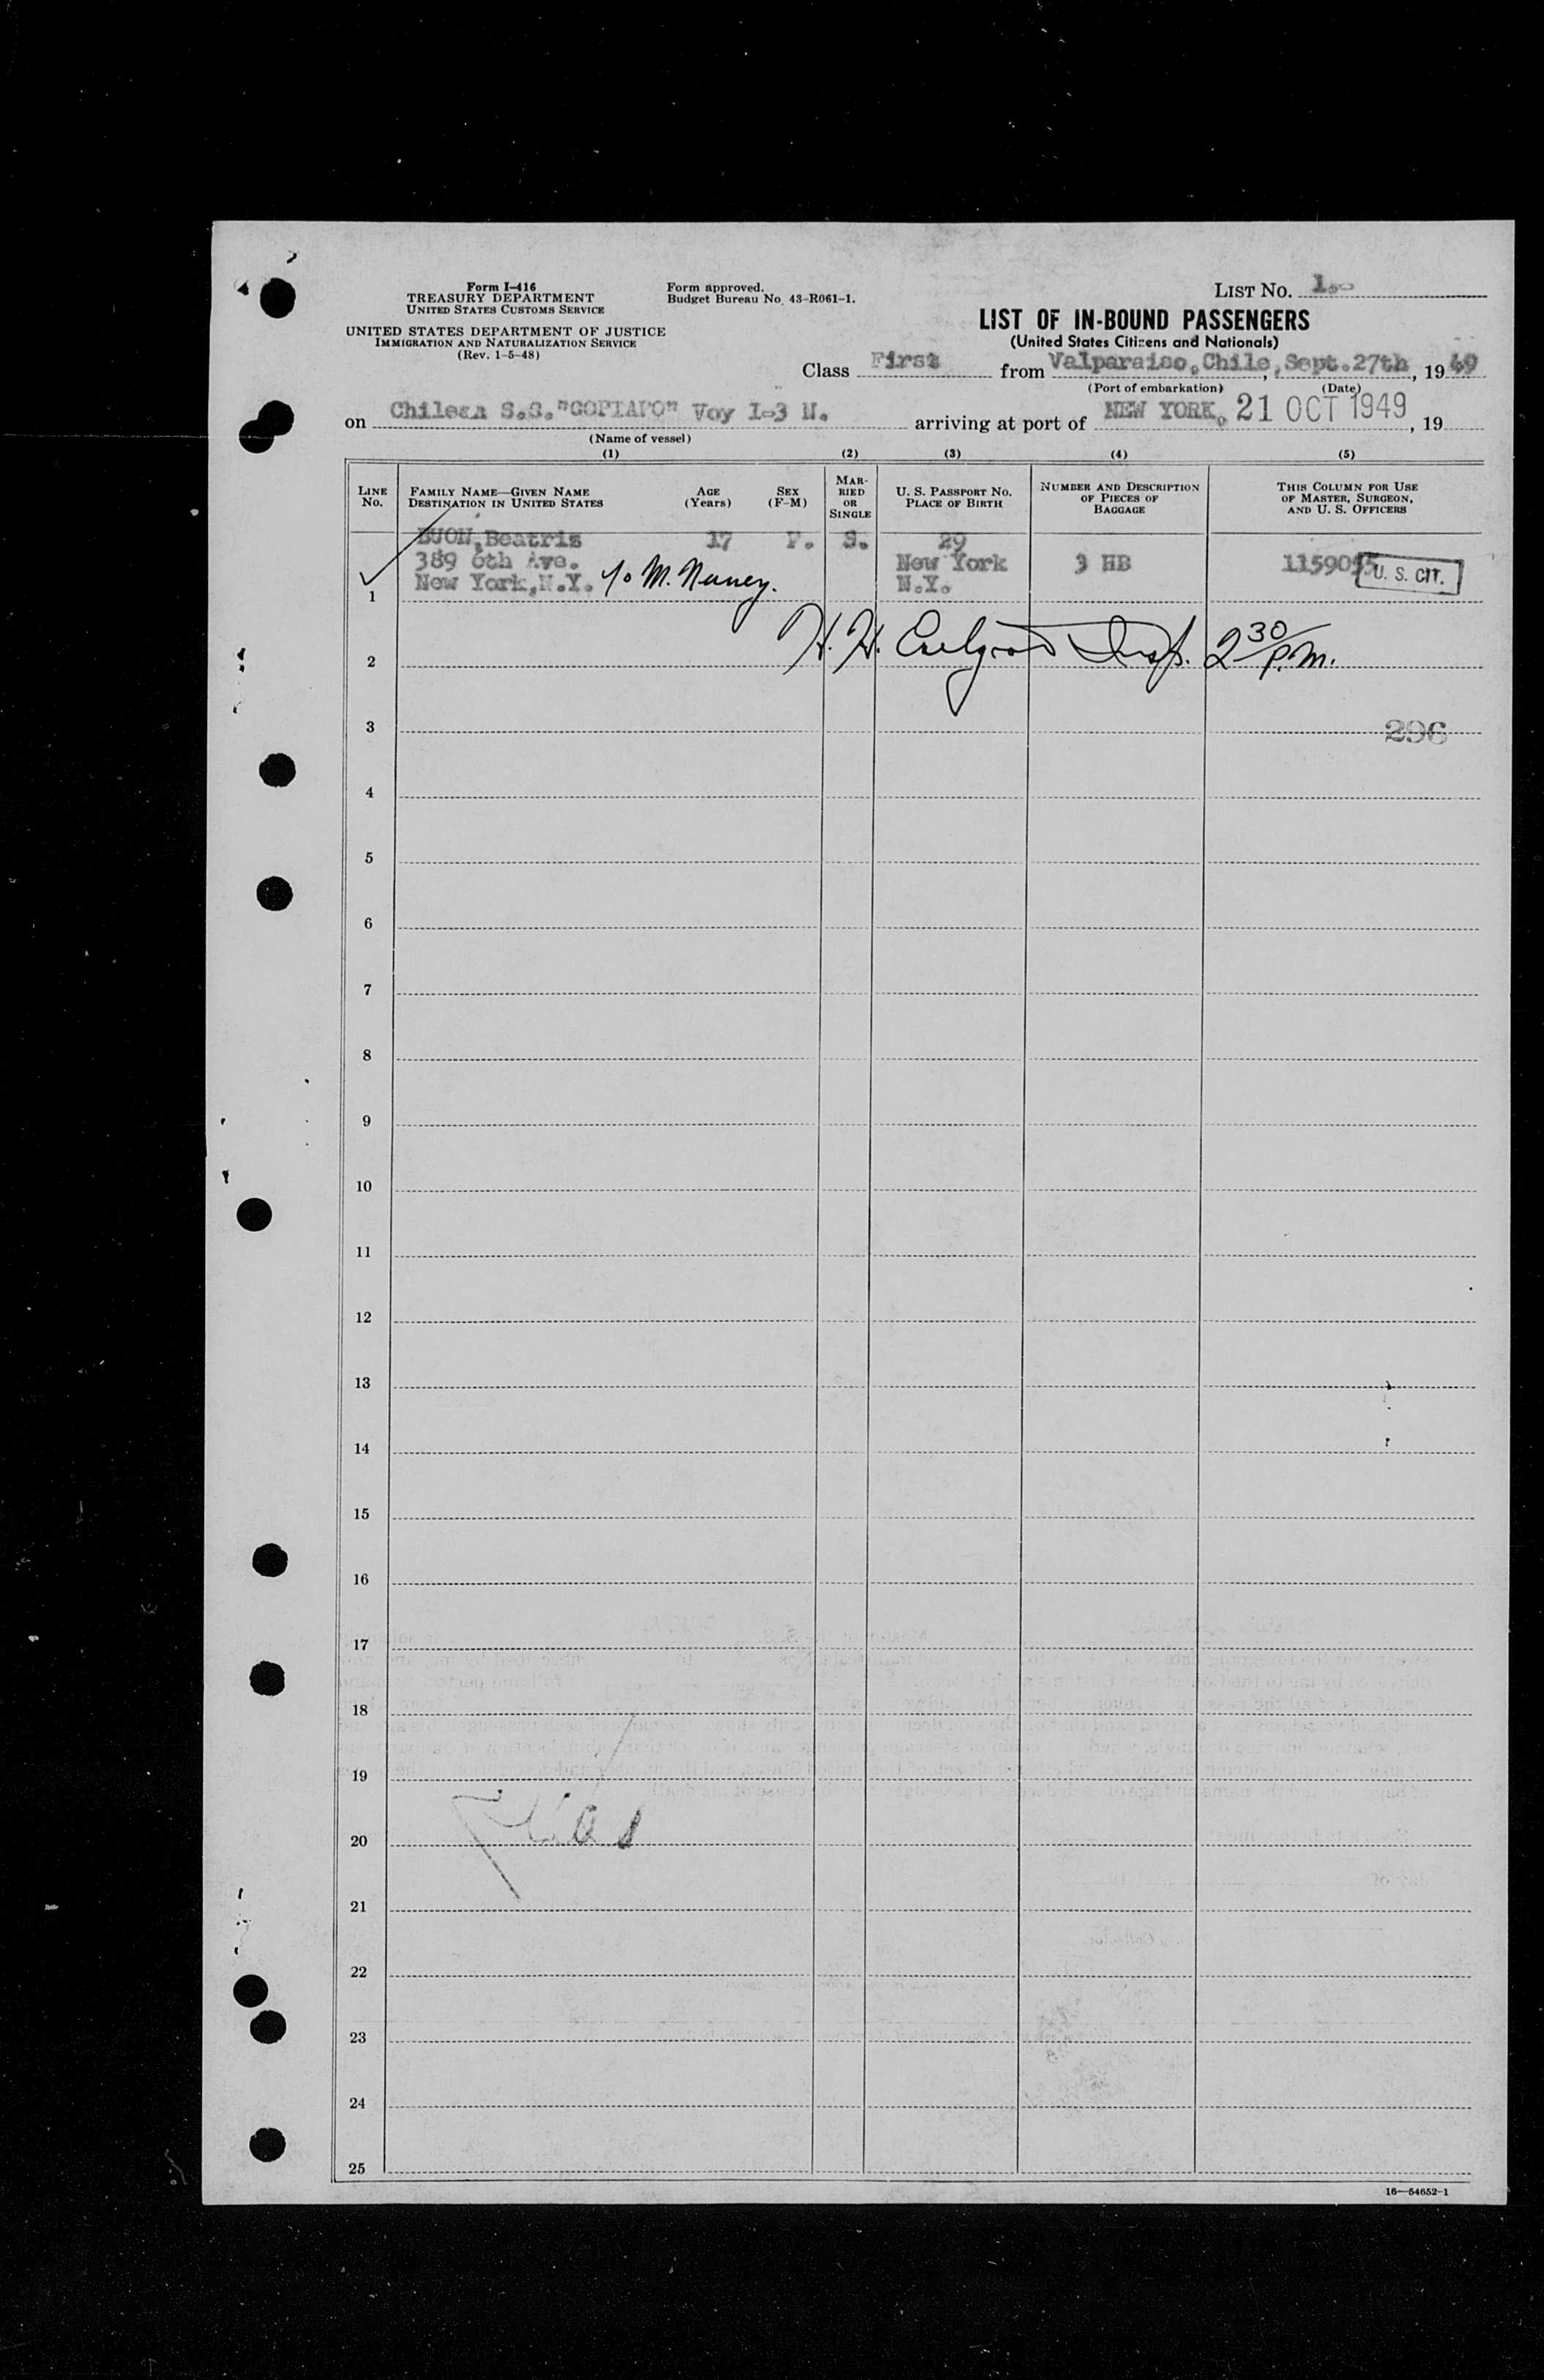 Form I-416
TREASURY DEPARTMENT
UNITED STATES CUSTOMS SERVICE
UNITED STATES DEPARTMENT OF JUSTICE
IMMIGRATION AND NATURALIZATION SERVICE
(Rev. 1-5-48)
Form approved.
Budget Bureau No. 43-R061-1.
LIST NO. 1
LIST OF IN-BOUND PASSENGERS
(United States Citizens and Nationals)
Class First from Valparaiso, Chile, Sept. 27th, 1949
(Port of embarkation) (Date)
on Chilean S.S. "COPIAPO" Voy 1-3 N. arriving at port of NEW YORK, 21 OCT 1949, 19
(Name of vessel)
(1) (2) (3) (4) (5)
LINE NO.
FAMILY NAME—GIVEN NAME
DESTINATION IN UNITED STATES
AGE (Years)
SEX (F-M)
MARRIED OR SINGLE
U. S. PASSPORT NO.
PLACE OF BIRTH
NUMBER AND DESCRIPTION OF PIECES OF BAGGAGE
THIS COLUMN FOR USE OF MASTER, SURGEON, AND U. S. OFFICERS
BUON, Beatris 17 F. S. 29
389 6th Ave. New York 3 HB 115905
New York, N.Y. c/o M. N.Y. U. S. CIT.
1
H. H. Insp. 2 30 P.M.
2
3 296
4
5
6
7
8
9
10
11
12
13
14
15
16
17
18
19
20
21
22
23
24
25
16—54652-1